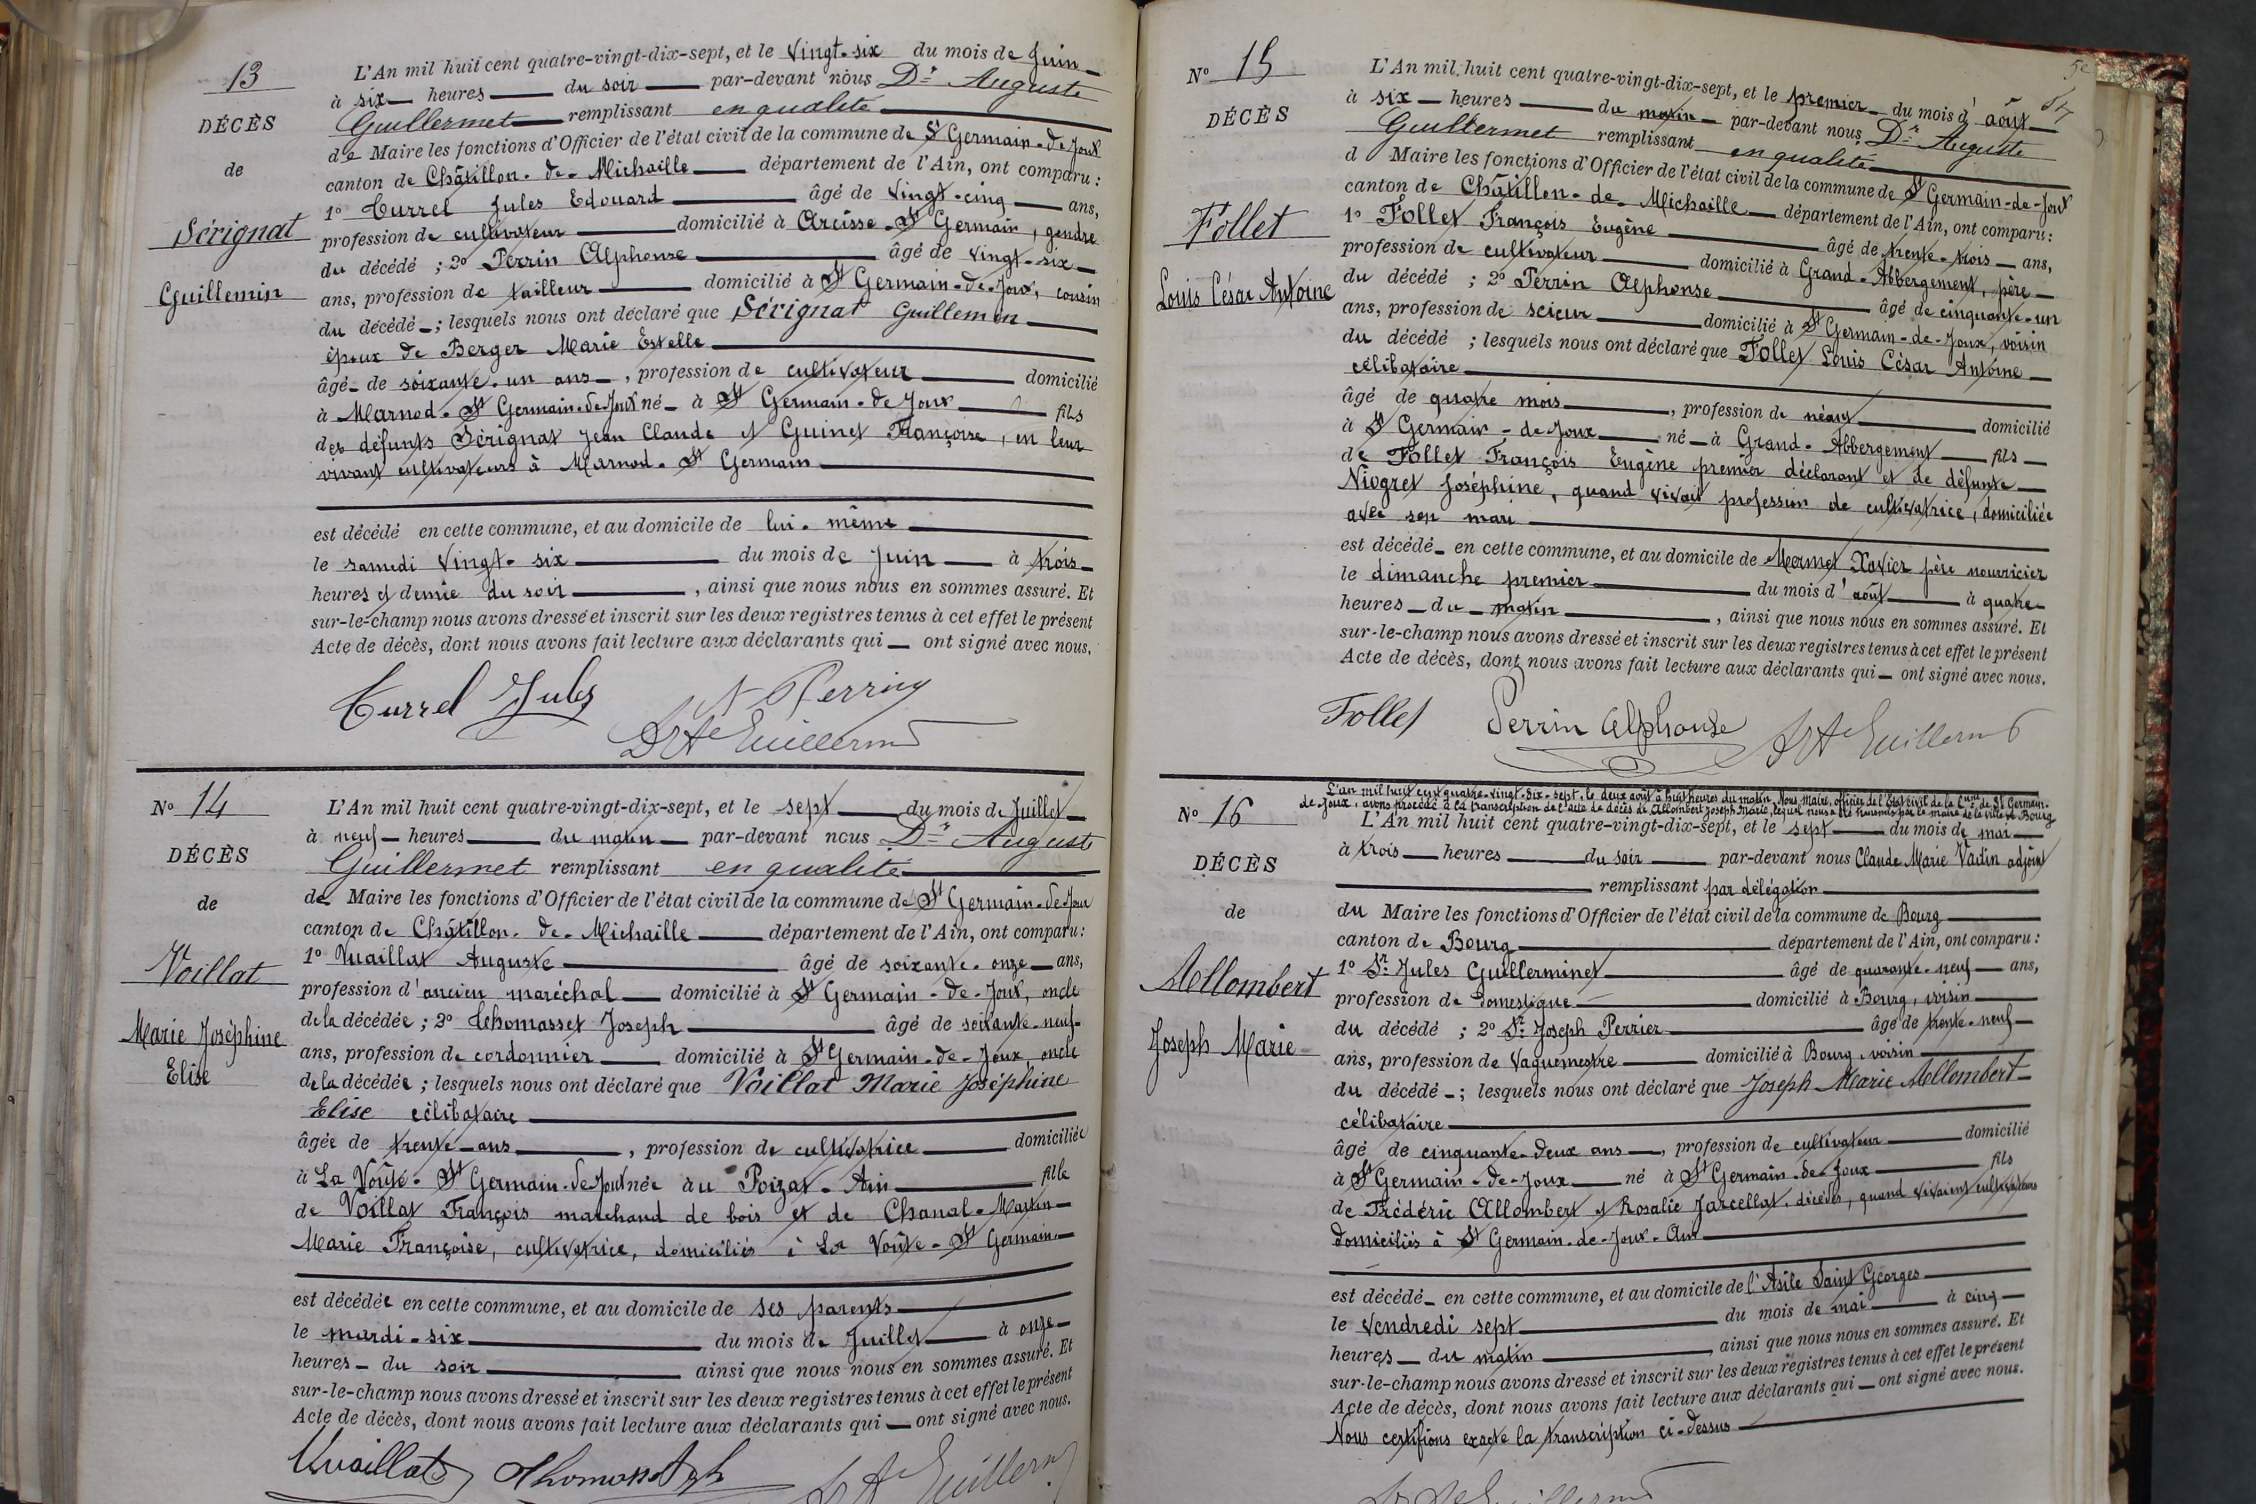 13
DÉCÈS
de
Sérignat
Guillemin
L'An mil huit cent quatre-vingt-dix-sept, et le vingt-six du mois de Juin
à six heures du soir par-devant nous Dr Auguste
Guillermet remplissant en qualité
de Maire les fonctions d'Officier de l'état civil de la commune de St Germain-de-Joux
canton de Châtillon-de-Michaille département de l'Ain, ont comparu :
1º Curre​l Jules Edouard âgé de vingt-cinq ans,
profession de cultivateur domicilié à Arcisse-St Germain, gendre
du décédé ; 2º Perrin Alphonse âgé de vingt-six
ans, profession de tailleur domicilié à St Germain-de-Joux, cousin
du décédé ; lesquels nous ont déclaré que Sérignat Guillemin
époux de Berger Marie Estelle
âgé de soixante-un ans, profession de cultivateur domicilié
à Marnod-St Germain-de-Joux né à St Germain-de-Joux fils
des défunts Sérignat Jean Claude et Guinet Françoise, en leur
vivant cultivateurs à Marnod-St Germain
est décédé en cette commune, et au domicile de lui-même
le samedi vingt-six du mois de Juin à trois
heures et demie du soir, ainsi que nous nous en sommes assuré. Et
sur-le-champ nous avons dressé et inscrit sur les deux registres tenus à cet effet le présent
Acte de décès, dont nous avons fait lecture aux déclarants qui ont signé avec nous.
Currel Jules A Perrin
Dr Ate Guillermet
Nº 14
DÉCÈS
de
Voillat
Marie Joséphine
Elise
L'An mil huit cent quatre-vingt-dix-sept, et le sept du mois de Juillet
à neuf heures du matin par-devant nous Dr Auguste
Guillermet remplissant en qualité
de Maire les fonctions d'Officier de l'état civil de la commune de St Germain-de-Joux
canton de Châtillon-de-Michaille département de l'Ain, ont comparu :
1º Vuaillat Auguste âgé de soixante-onze ans,
profession d'ancien maréchal domicilié à St Germain-de-Joux, oncle
de la décédée ; 2º Thomasset Joseph âgé de soixante-neuf
ans, profession de cordonnier domicilié à St Germain-de-Joux, oncle
de la décédée ; lesquels nous ont déclaré que Voillat Marie Joséphine
Elise célibataire
âgée de trente ans, profession de cultivatrice domiciliée
à La Voûte-St Germain-de-Joux née au Poizat-Ain fille
de Voillat François marchand de bois et de Chanal-Martin
Marie Françoise, cultivatrice, domiciliés à La Voûte-St Germain
est décédée en cette commune, et au domicile de ses parents
le mardi-six du mois de Juillet à onze
heures du soir ainsi que nous nous en sommes assuré. Et
sur-le-champ nous avons dressé et inscrit sur les deux registres tenus à cet effet le présent
Acte de décès, dont nous avons fait lecture aux déclarants qui ont signé avec nous.
Vuaillat Thomasset Jph Dr Ate Guillermet
Nº 15
DÉCÈS
Follet
Louis César Antoine
L'An mil huit cent quatre-vingt-dix-sept, et le premier du mois d'août
à six heures du matin par-devant nous Dr Auguste
Guillermet remplissant en qualité
d Maire les fonctions d'Officier de l'état civil de la commune de St Germain-de-Joux
canton de Châtillon-de-Michaille département de l'Ain, ont comparu :
1º Follet François Eugène âgé de trente-trois ans,
profession de cultivateur domicilié à Grand-Abbergement, père
du décédé ; 2º Perrin Alphonse âgé de cinquante-un
ans, profession de scieur domicilié à St Germain-de-Joux, voisin
du décédé ; lesquels nous ont déclaré que Follet Louis César Antoine
célibataire
âgé de quatre mois, profession de néant domicilié
à St Germain-de-Joux né à Grand-Abbergement fils
de Follet François Eugène premier déclarant et de défunte
Niogret Joséphine, quand vivait profession de cultivatrice, domiciliée
avec son mari
est décédé en cette commune, et au domicile de Mermet Xavier père nourricier
le dimanche premier du mois d'août à quatre
heures du matin, ainsi que nous nous en sommes assuré. Et
sur-le-champ nous avons dressé et inscrit sur les deux registres tenus à cet effet le présent
Acte de décès, dont nous avons fait lecture aux déclarants qui ont signé avec nous.
Follet Perrin Alphonse Dr Ate Guillermet
Nº 16
DÉCÈS
de
Allombert
Joseph Marie
L'an mil huit cent quatre-vingt-dix-sept, le deux août à huit heures du matin, Nous Maire, officier de l'Etat civil de la Cune de St Germain-
de-Joux, avons procédé à la transcription de l'acte de décès de Allombert Joseph Marie, lequel nous a été transmis par le maire de la ville de Bourg
L'An mil huit cent quatre-vingt-dix-sept, et le sept du mois de mai
à trois heures du soir par-devant nous Claude Marie Vadin adjoint
remplissant par délégation
du Maire les fonctions d'Officier de l'état civil de la commune de Bourg
canton de Bourg département de l'Ain, ont comparu :
1º Sr Jules Guillerminet âgé de quarante-neuf ans,
profession de domestique domicilié à Bourg, voisin
du décédé ; 2º Sr Joseph Perrier âgé de trente-neuf
ans, profession de Vaguemestre domicilié à Bourg, voisin
du décédé ; lesquels nous ont déclaré que Joseph Marie Allombert
célibataire
âgé de cinquante-deux ans, profession de cultivateur domicilié
à St Germain-de-Joux né à St Germain-de-Joux fils
de Frédéric Allombert et Rosalie Jarcellat, décédés, quand vivaient cultivateurs
domiciliés à St Germain-de-Joux-Ain
est décédé en cette commune, et au domicile de l'Asile Saint Georges
le vendredi sept du mois de mai à cinq
heures du matin, ainsi que nous nous en sommes assuré. Et
sur-le-champ nous avons dressé et inscrit sur les deux registres tenus à cet effet le présent
Acte de décès, dont nous avons fait lecture aux déclarants qui ont signé avec nous.
Nous certifions exacte la transcription ci-dessus
Dr Ate Guillermet